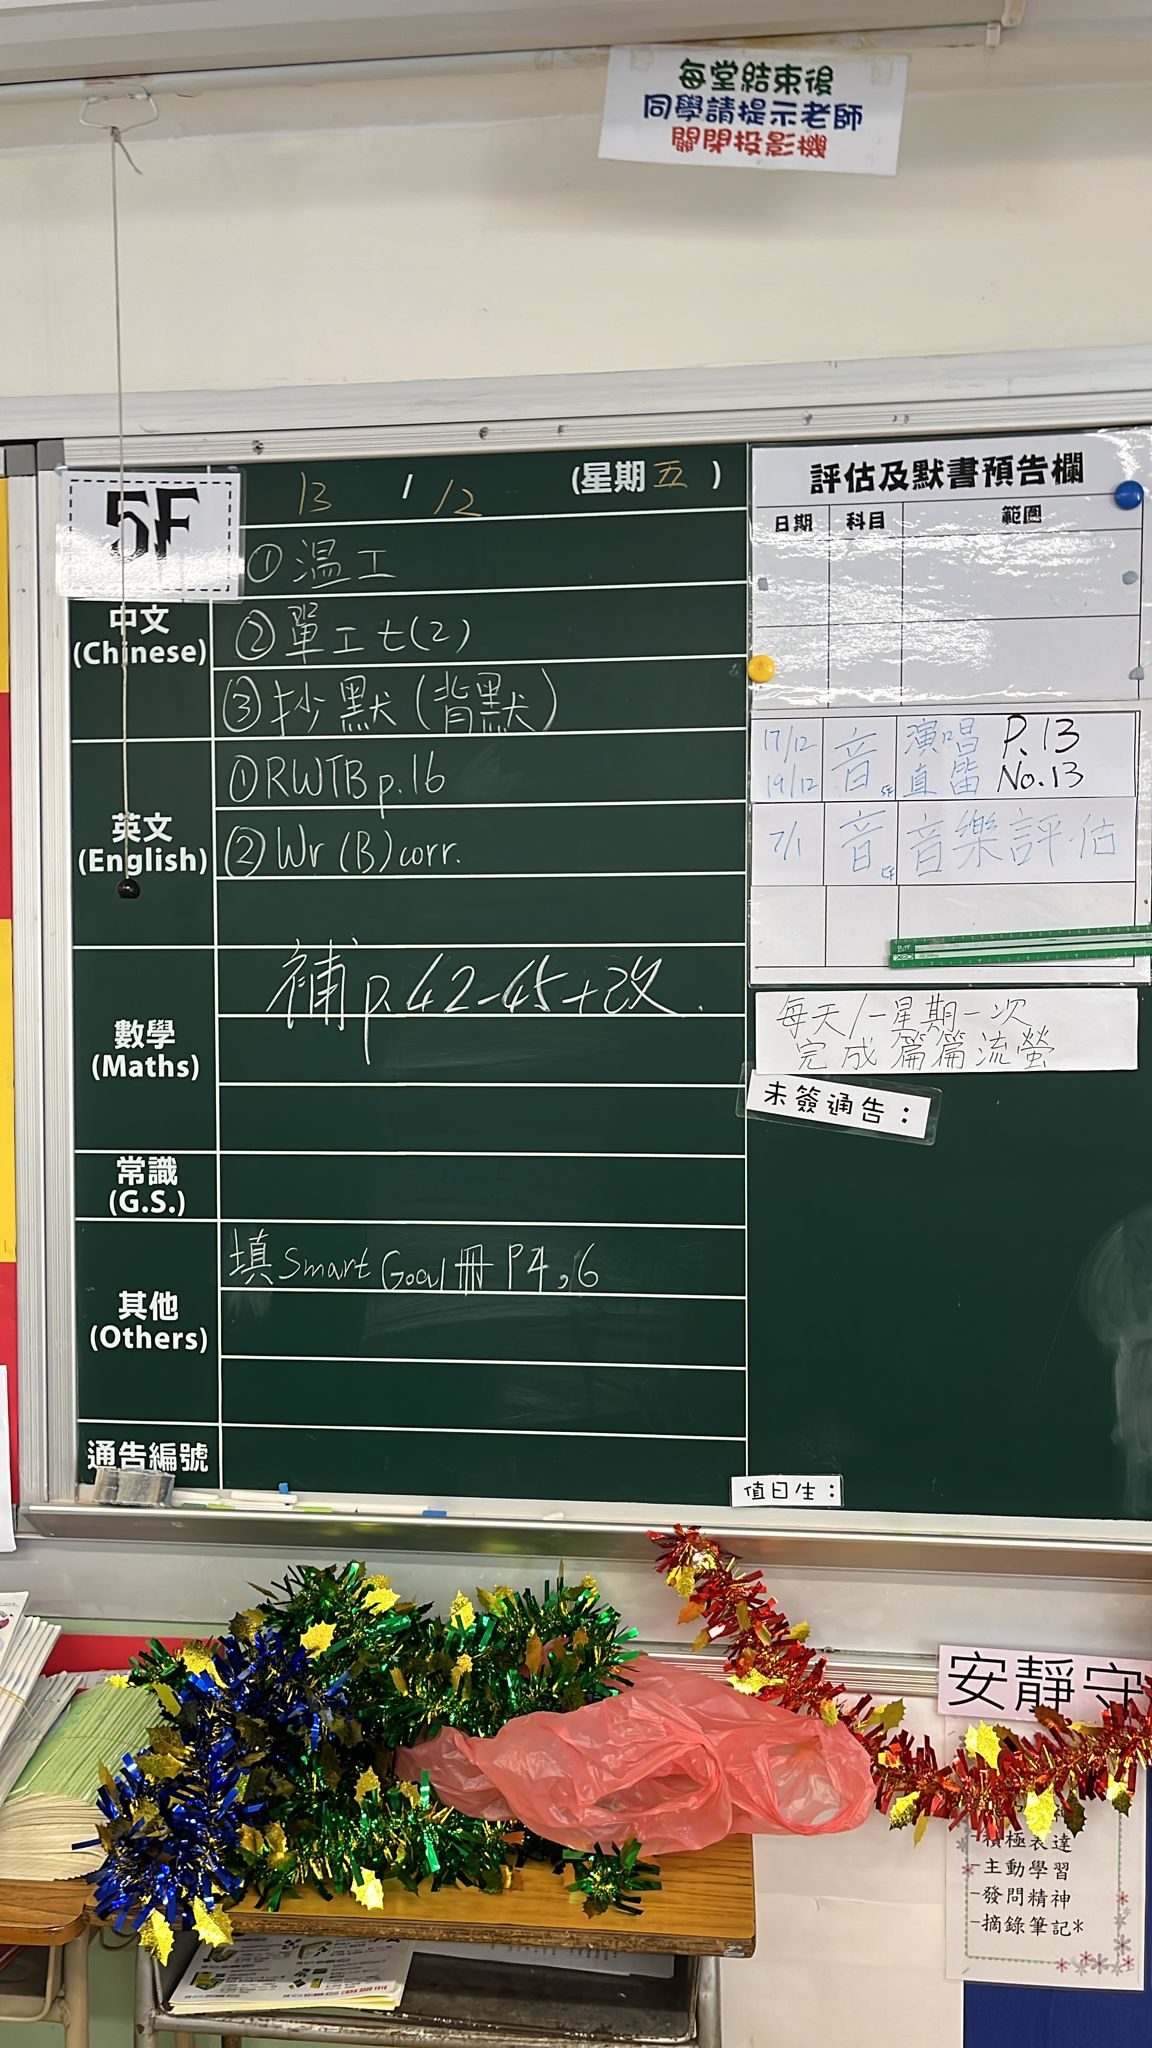 每堂結束後
同學請提示老師
關閉投影機
5F
13 / 12 (星期五)
中文
(Chinese)
①温工
②單工七(2)
③抄默(背默)
英文
(English)
①RWTB p.16
②Wr (B) corr.
數學
(Maths)
補 p.42-45+改.
常識
(G.S.)
其他
(Others)
填 Smart Goal 冊 P4,6
通告編號
評估及默書預告欄
日期 科目 範圍
17/12 音 演唱 P.13
19/12 5F 直笛 No.13
7/1 音 音樂評估
每天/一星期一次
完成篇篇流螢
未簽通告：
值日生：
安靜守
積極表達
-主動學習
-發問精神
-摘錄筆記*